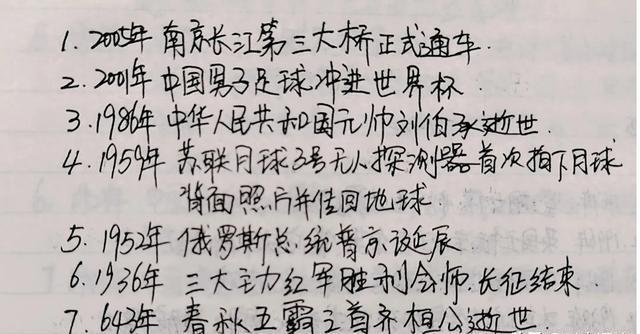 1. 2005年 南京长江第三大桥正式通车.
2. 2001年 中国男子足球冲进世界杯
3. 1986年 中华人民共和国元帅刘伯承逝世.
4. 1959年 苏联月球3号无人探测器首次拍下月球
背面照片并传回地球
5. 1952年 俄罗斯总统普京诞辰
6. 1936年 三大主力红军胜利会师.长征结束
7. 643年 春秋五霸之首齐桓公逝世